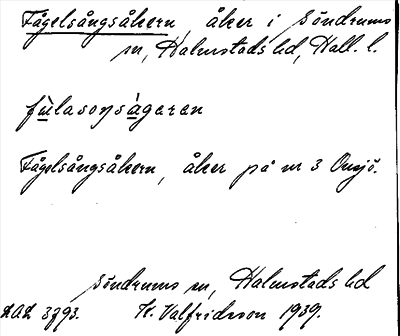 Fågelsångsåkern, åker i Söndrums
sn, Halmstads hd, Hall. l.
fùlasoŋságeren
Fågelsångsåkern, åker på nr 3 Onsjö.
Söndrums sn, Halmstads hd
LAL 3793. H. Valfridsson 1939.